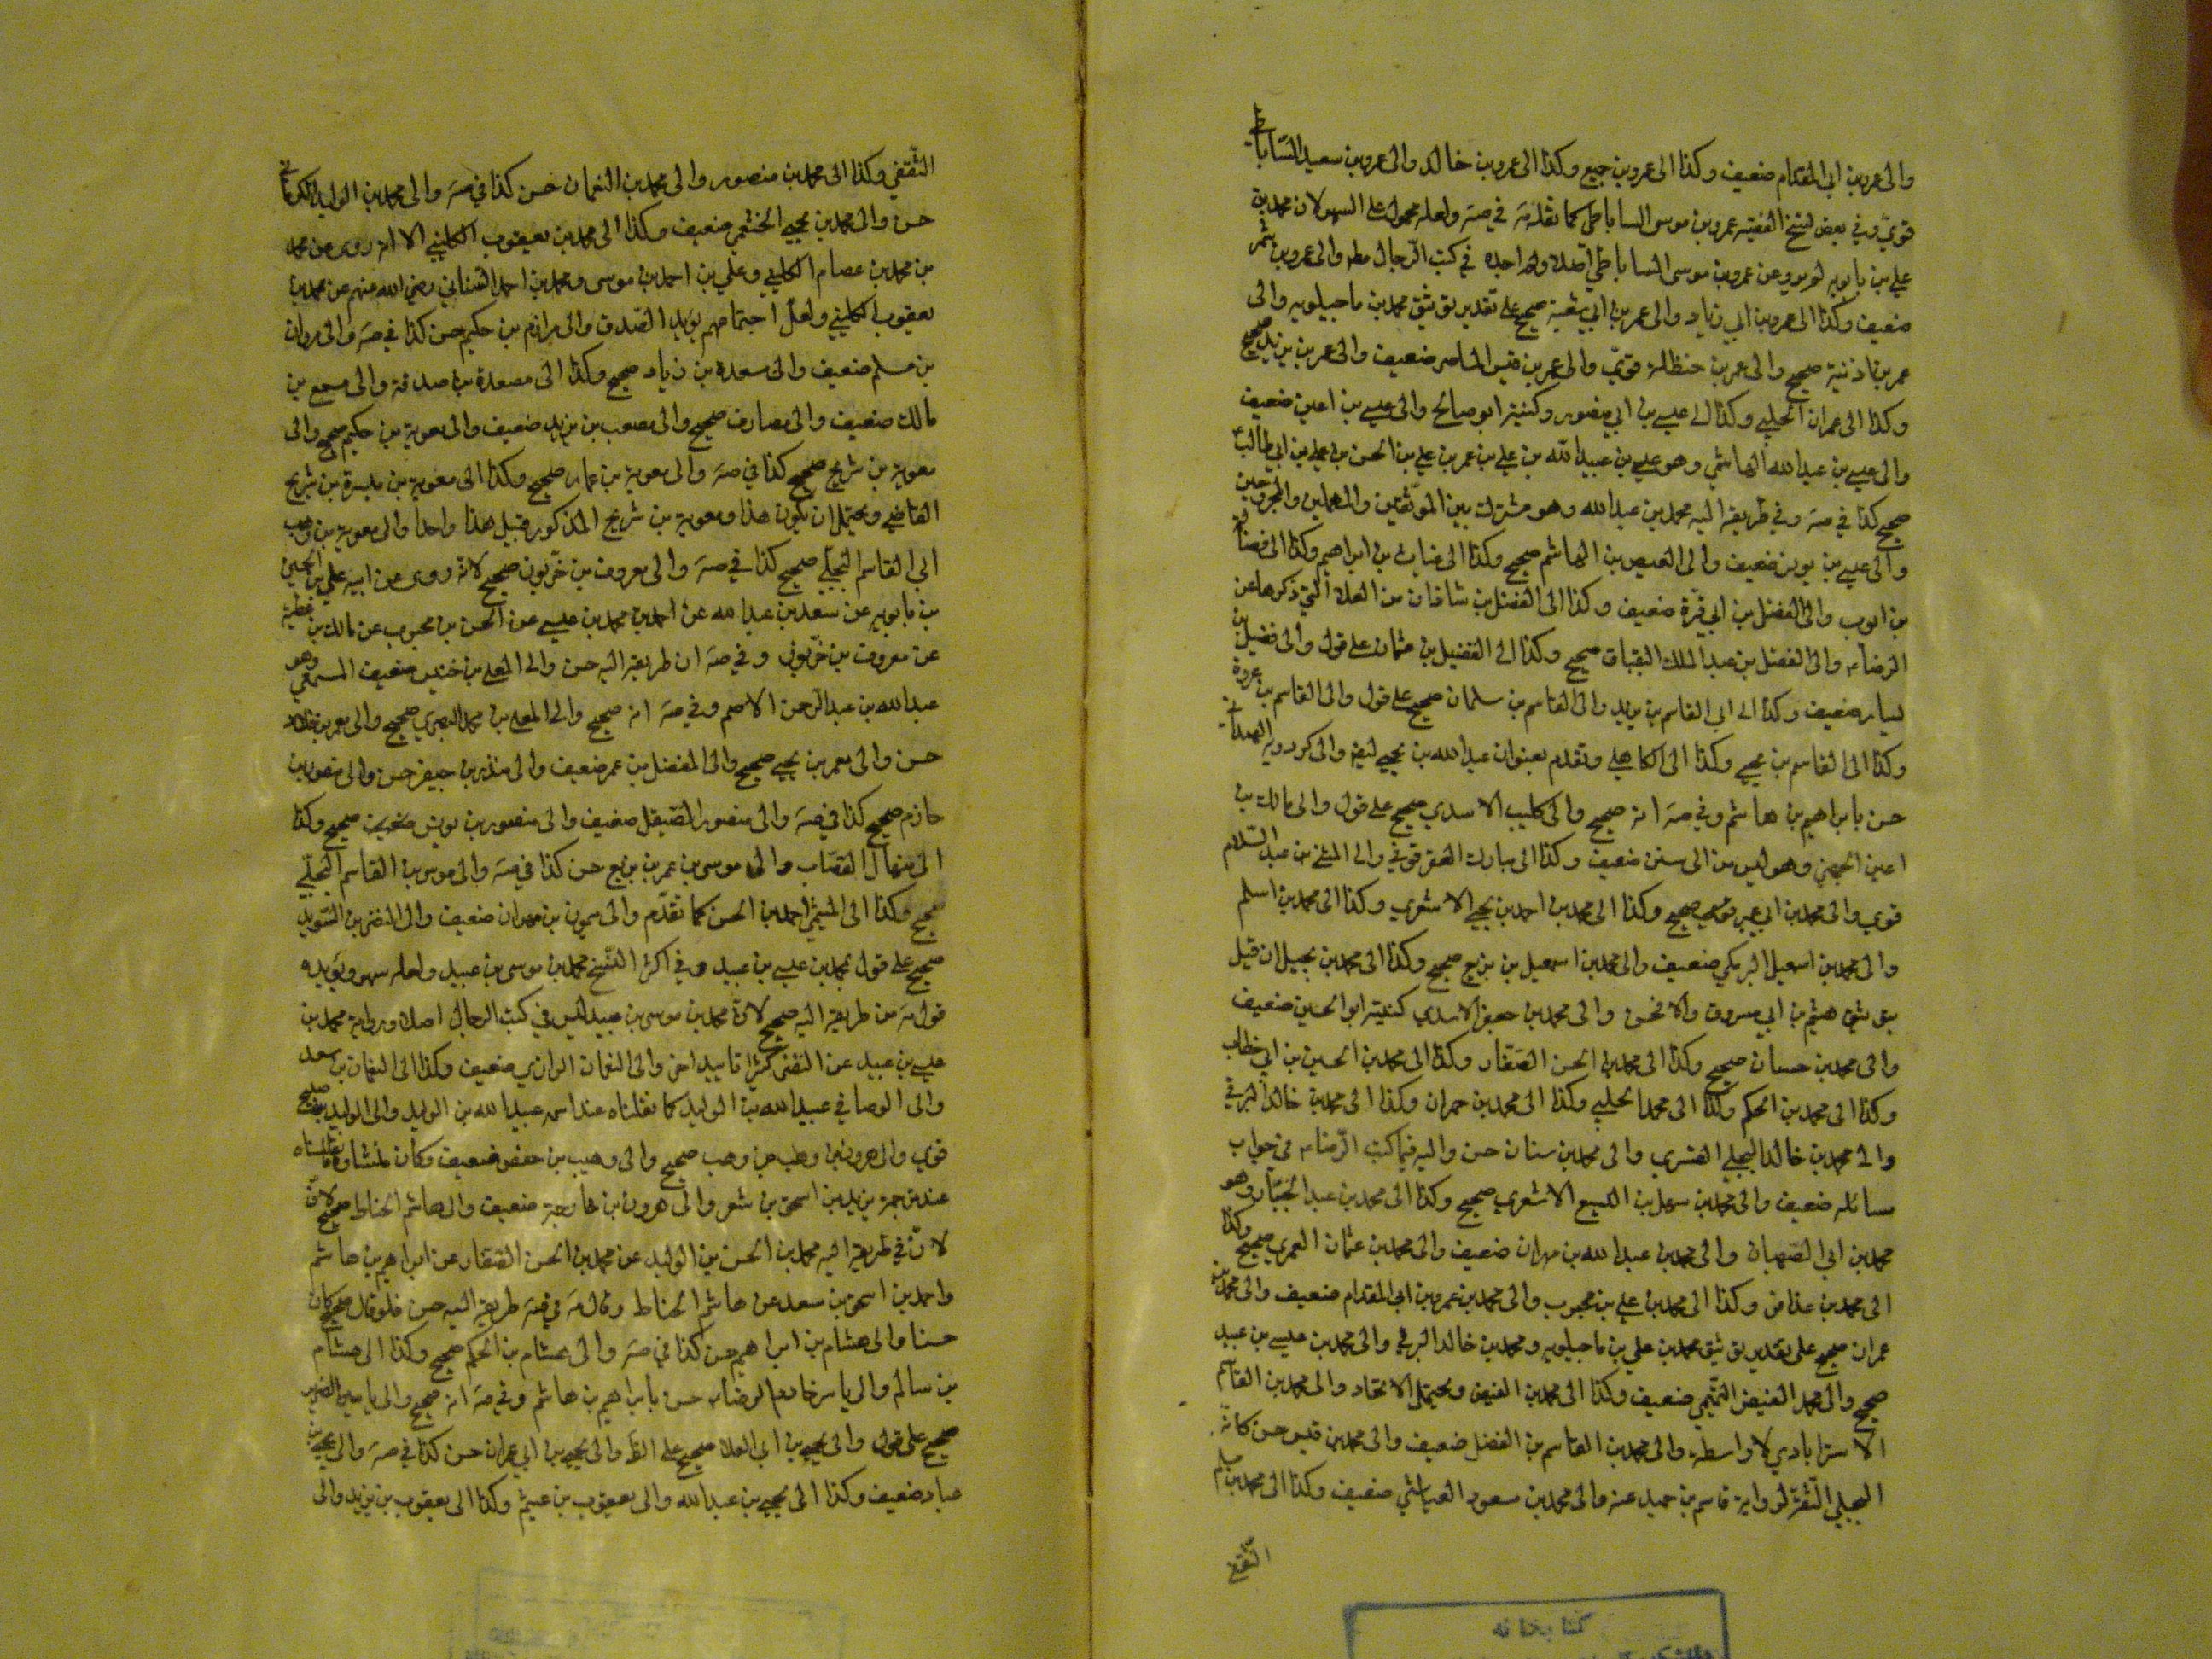 والى عمرو بن ابي المقدام ضعيف وكذا الى عمرو بن جميع وكذا الى عمرو بن خالد والى عمرو بن سعيد الساباطي
قوي وفي بعض نسخ الفقيه عمرو بن موسى الساباطي كما نقله مة في صة ولعله محمول على السهو لان محمد بن
علي بن بابويه لم يرو عن عمرو بن موسى الساباطي اصلا ولم اجده في كتب الرجال مطم والى عمرو بن شمر
ضعيف وكذا الى عمرو بن ابي زياد والى عمر بن ابي شعبة صحيح على تقدير توثيق محمد بن ماجيلويه والى
عمر بن اذينة صحيح والى عمر بن حنظلة قوي والى عمر بن قيس الماصر ضعيف والى عمر بن يزيد صحيح
وكذا الى عمران الحلبي وكذا الى عيسى بن ابي منصور وكنيته ابو صالح والى عيسى بن اعين ضعيف
والى عيسى بن عبد الله الهاشمي وهو عيسى بن عبيد الله بن علي بن عمر بن علي بن الحسن بن علي بن ابي طالب ع
صحيح كذا في صة وفي طريقه اليه محمد بن عبد الله وهو مشترك بين الموثقين والمهملين والمجروحين
والى عيسى بن يونس ضعيف والى العيص بن القاسم صحيح وكذا الى غياث بن ابراهيم وكذا الى فضالة
بن ايوب والى الفضل بن ابي قرة ضعيف وكذا الى الفضل بن شاذان من العلل التي ذكرها عن
الرضا ع والى الفضل بن عبد الملك البقباق صحيح وكذا الى الفضيل بن عثمان على قول والى فضيل بن
يسار ضعيف وكذا الى ابي القاسم بن يزيد والى القاسم بن سلمان صحيح على قول والى القاسم بن عروة
وكذا الى القاسم بن يحيى وكذا الى الكاهلي وتقدم بعنوان عبد الله بن يحيى ايضا والى كردويه الهمداني
حسن بابراهيم بن هاشم وفي صة انه صحيح والى كليب الاسدي صحيح على قول والى مالك بن
اعين الجهني وهو ليس من الى سنن ضعيف وكذا الى مبارك العقرقوفي والى المثنى بن عبد السلام
قوي والى محمد بن ابي عمير صحيح وكذا الى محمد بن احمد بن يحيى الاشعري وكذا الى محمد بن اسلم
والى محمد بن اسمعيل البرمكي ضعيف والى محمد بن اسمعيل بن بزيع صحيح وكذا الى محمد بن بجيل ان قيل
بتوثيق هيثم بن ابي مسروق والا فحسن والى محمد بن جعفر الاسدي كنيته ابو الحسين ضعيف
والى محمد بن حسان صحيح وكذا الى محمد بن الحسن الصفار وكذا الى محمد بن الحسين بن ابي خطاب
وكذا الى محمد بن الحكم وكذا الى محمد الحلبي وكذا الى محمد بن حمران وكذا الى محمد بن خالد البرقي
والى محمد بن خالد البجلي القسري والى محمد بن سنان حسن واليه فيما كتب الرضا ع في جواب
مسائله ضعيف والى محمد بن سهل بن اليسع الاشعري صحيح وكذا الى محمد بن عبد الجبار وهو
محمد بن ابي الصهبان والى محمد بن عبد الله بن مهران ضعيف والى محمد بن عثمان العمري صحيح وكذا
الى محمد بن عذافر وكذا الى محمد بن علي بن محبوب والى محمد بن عمرو بن ابي المقدام ضعيف والى محمد بن
عمران صحيح على تقدير توثيق محمد بن علي بن ماجيلويه ومحمد بن خالد البرقي والى محمد بن عيسى بن عبيد
صحيح والى محمد الفيض التميمي ضعيف وكذا الى محمد بن الفيض ويحتمل الاتحاد والى محمد بن القاسم
الاسترابادي لا واسطه والى محمد بن القاسم بن الفضل ضعيف والى محمد بن قيس حسن كانه
البجلي الثقة لرواية قاسم بن حميد عنه والى محمد بن مسعود العياشي ضعيف وكذا الى محمد بن مسلم
الثقفي
كتابخانه
الثقفي وكذا الى محمد بن منصور والى محمد بن النعمان حسن كذا في صة والى محمد بن الوليد الكرماني
حسن والى محمد بن يحيى الخثعمي ضعيف وكذا الى محمد بن يعقوب الكليني الا انه روى عن محمد
بن محمد بن عصام الكليني وعلي بن احمد بن موسى ومحمد بن احمد السناني رضي الله عنهم عن محمد بن
يعقوب الكليني ولعل اجتماعهم يؤيد الصدق والى مرازم بن حكيم حسن كذا في صة والى مروان
بن مسلم ضعيف والى مسعدة بن زياد صحيح وكذا الى مصعدة بن صدقة والى مسمع بن
مالك ضعيف والى مصادف صحيح والى مصعب بن يزيد ضعيف والى معوية بن حكيم صحيح والى
معوية بن شريح صحيح كذا في صة والى معوية بن عمار صحيح وكذا الى معوية بن ميسرة بن شريح
القاضي ويحتمل ان يكون هذا ومعوية بن شريح المذكور قبيل هذا واحدا والى معوية بن وهب
ابي القاسم البجلي صحيح كذا في صة والى معروف بن خربوذ صحيح لانه روى عن ابيه علي بن الحسين
بن بابويه عن سعد بن عبد الله عن احمد بن محمد بن عيسى عن الحسن بن محبوب عن مالك بن عطية
عن معروف بن خربوذ وفي صة ان طريقه اليه حسن والى المعلى بن خنيس ضعيف المسمعي وهو
عبد الله بن عبد الرحمن الاصم وفي صة انه صحيح والى المعلى بن محمد البصري صحيح والى معمر بن خلاد
حسن والى معمر بن يحيى صحيح والى المفضل بن عمر ضعيف والى منذر بن جيفر حسن والى منصور بن
حازم صحيح كذا في صة والى منصور الصيقل ضعيف والى منصور بن يونس صحيح وكذا
الى منهال القصاب والى موسى بن عمر بن بزيع حسن كذا في صة والى موسى بن القاسم البجلي
صحيح وكذا الى الميثمي احمد بن الحسن كما تقدم والى ميمون بن مهران ضعيف والى النضر بن السويد
صحيح على قول بمحمد بن عيسى بن عبيد وفي اكثر النسخ محمد بن موسى بن عبيد ولعله سهو ويؤيده
قول مة من طريقه اليه صحيح لان محمد بن موسى بن عبيد ليس في كتب الرجال اصلا ورواية محمد بن
عيسى بن عبيد عن النضر كثيرا تاييد اخر والى النعمان الرازي ضعيف وكذا الى النعمان بن سعد
والى الوصافي عبيد الله بن الوليد كما نقلناه عند اسمه عبيد الله بن الوليد والى الوليد بن صبيح
قوي والى وهب بن وهب صحيح والى وهيب بن حفص ضعيف وكان
عند ترجمة يزيد بن اسحق بن شعر والى هرون بن خارجة ضعيف والى هاشم الحناط صحيح
لان في طريقه اليه محمد بن الحسن بن الوليد عن محمد بن الحسن الصفار عن ابراهيم بن هاشم
واحمد بن اسحق بن سعد عن هاشم الحناط وقال مة في صة طريقه اليه حسن فلو قال صحيح كان
حسنا والى هشام بن ابراهيم حسن كذا في صة والى هشام بن الحكم صحيح وكذا الى هشام
بن سالم والى ياسر خادم الرضا ع حسن بابراهيم بن هاشم وفي صة انه صحيح والى ياسين الضرير
صحيح على قول والى يحيى بن ابي العلا صحيح على الظ والى يحيى بن ابي عمران حسن كذا في صة والى يحيى بن
عباد ضعيف وكذا الى يحيى بن عبد الله والى يعقوب بن عيثم وكذا الى يعقوب بن يزيد والى